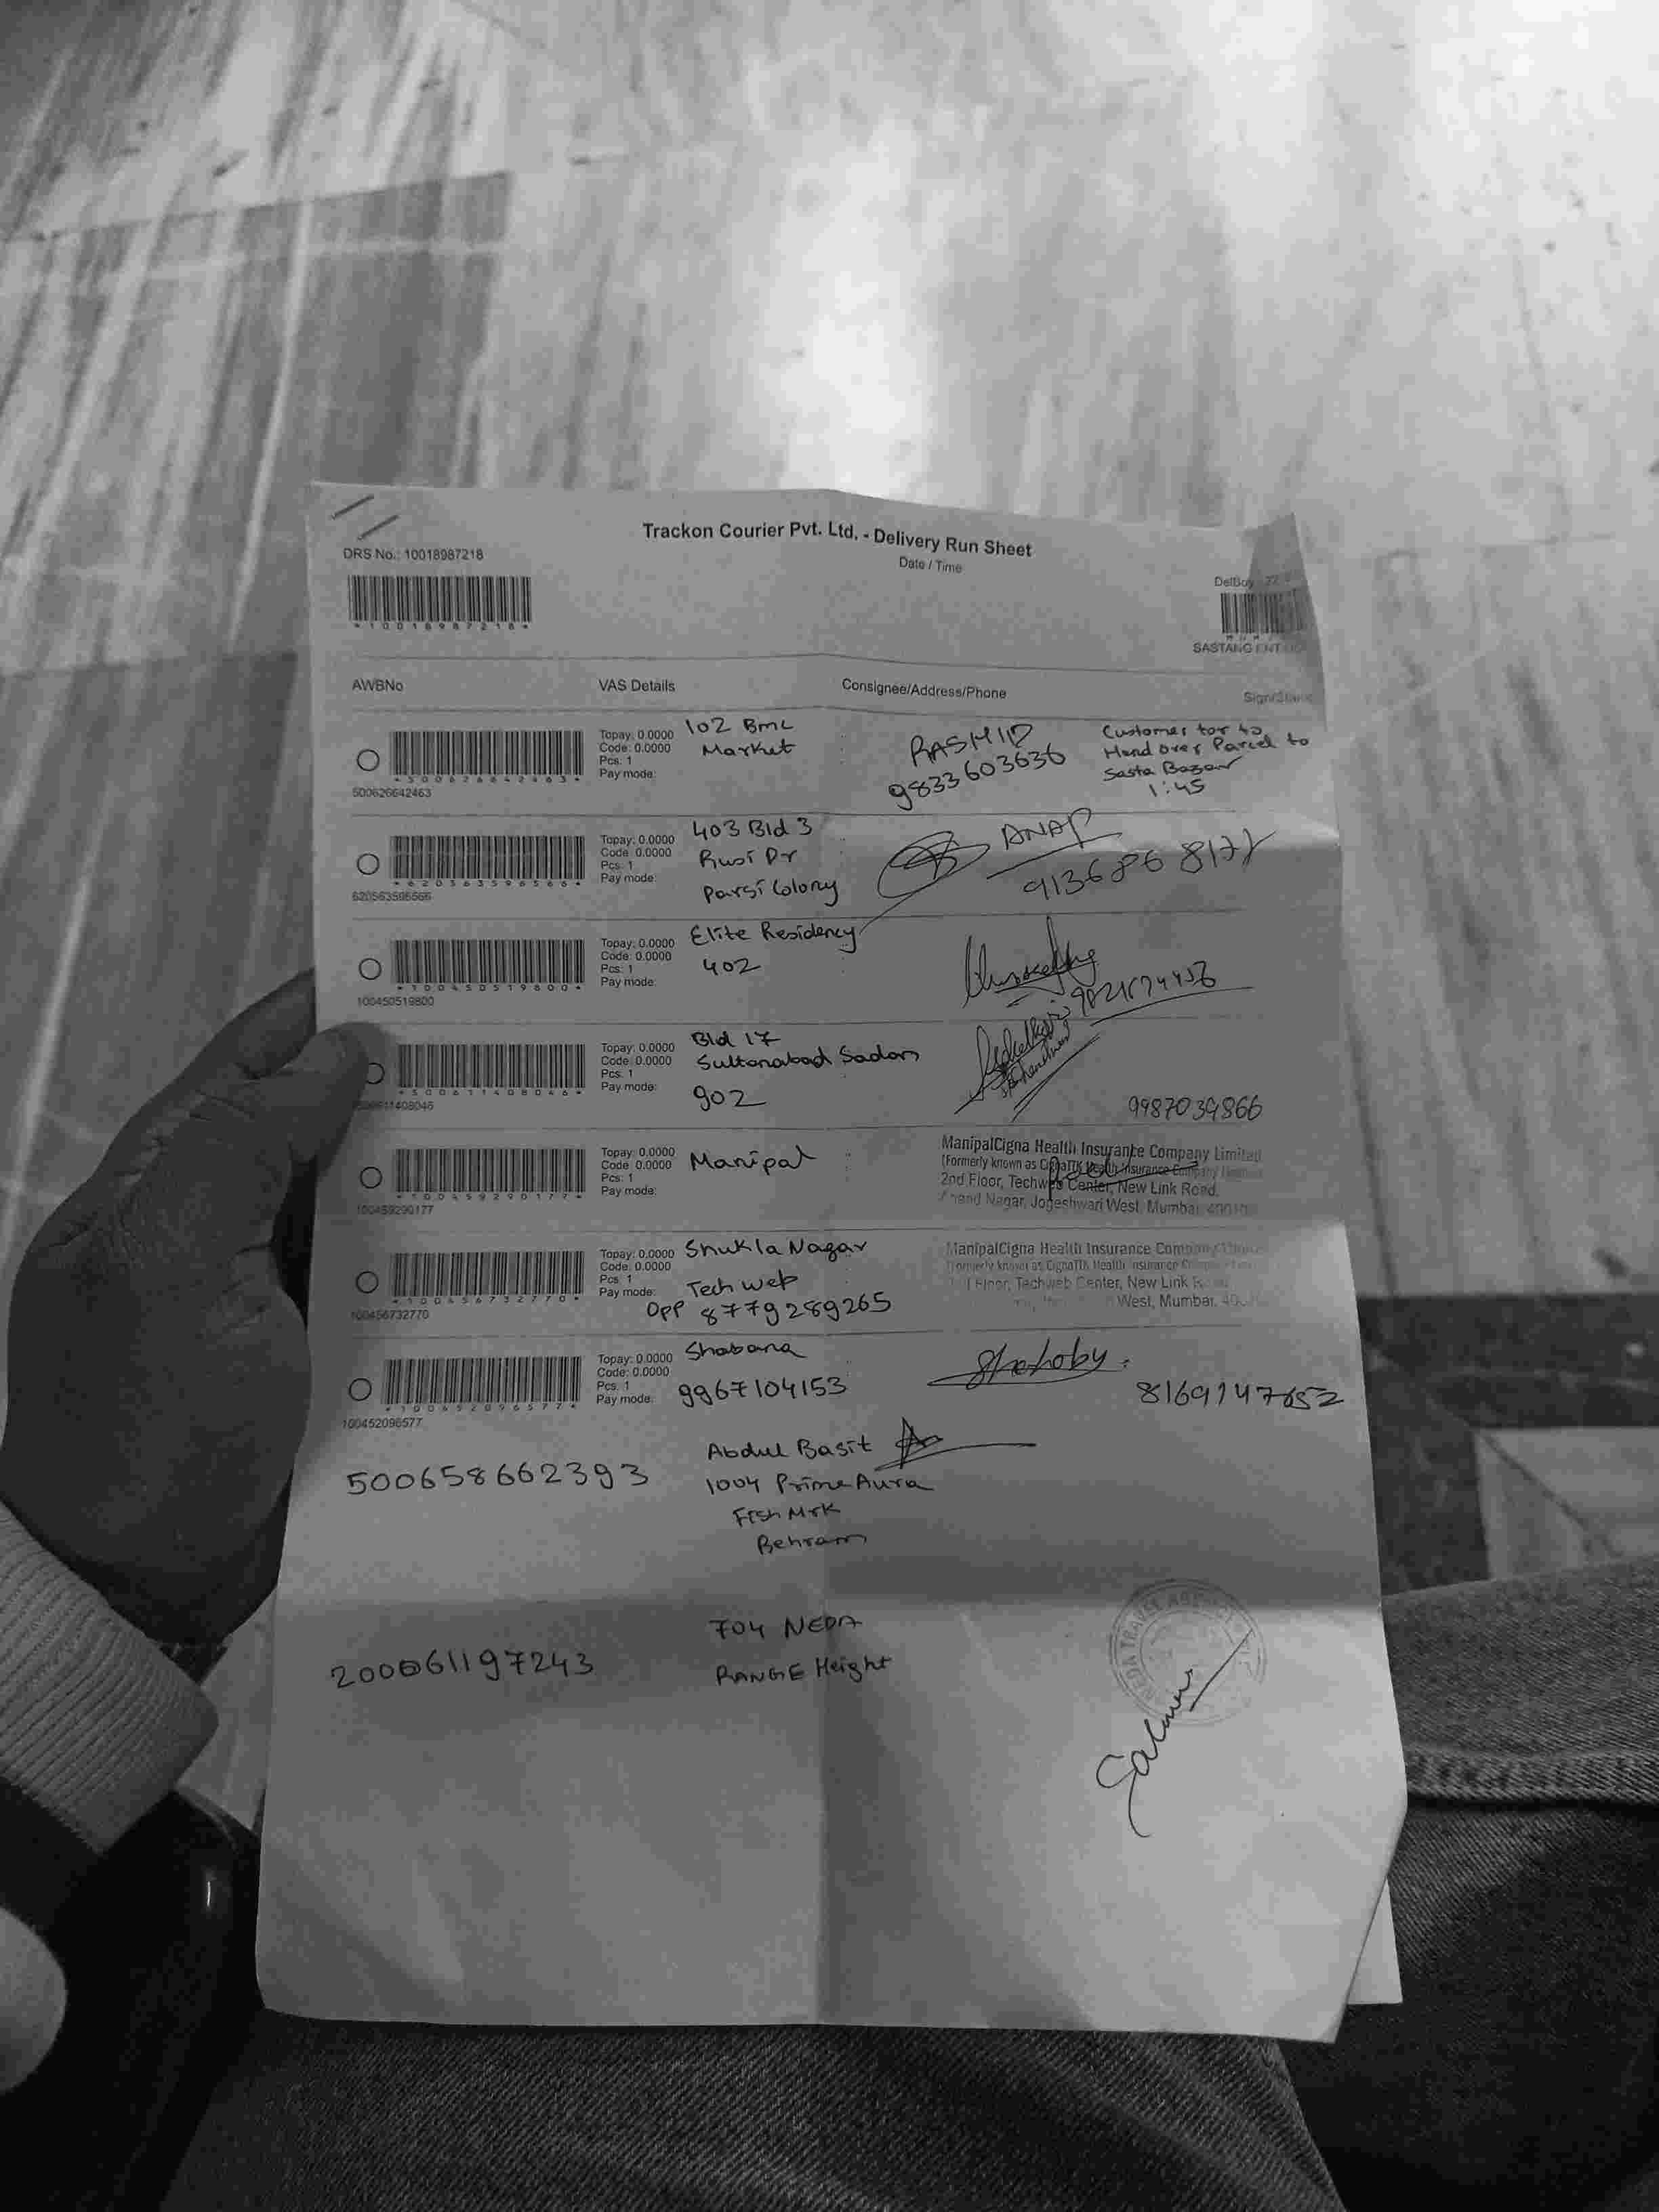 Trackon Courier Pvt. Ltd. - Delivery Run Sheet
Date / Time
DRS No.: 10018987218
*10018987218*
DelBoy
SASTANG ENT
AWBNo VAS Details Consignee/Address/Phone Sign/Stamp
Topay: 0.0000
Code: 0.0000
Pcs: 1
Pay mode:
500626642463
102 Bmc
Market
RASHID
9833603636
Customer tor to
Hand over Parcel to
Sasta Bazar
1:45
Topay: 0.0000
Code: 0.0000
Pcs: 1
Pay mode:
620563596566
403 Bld 3
Rusi Dr
Parsi Colony
ANAP
9136868177
Topay: 0.0000
Code: 0.0000
Pcs: 1
Pay mode:
*100450519800*
100450519800
Elite Residency
402
Topay: 0.0000
Code: 0.0000
Pcs: 1
Pay mode:
*500611408046*
Bld 17
Sultanabad Sadan
902
9987039866
Topay: 0.0000
Code: 0.0000
Pcs: 1
Pay mode:
*100459290177*
100459290177
Manipal
ManipalCigna Health Insurance Company Limited
(Formerly known as CignaTTK Health Insurance Company Limited)
2nd Floor, Techweb Center, New Link Road,
Anand Nagar, Jogeshwari West, Mumbai
Topay: 0.0000
Code: 0.0000
Pcs: 1
Pay mode:
*100456732770*
100456732770
Shukla Nagar
Tech web
Opp 8779289265
ManipalCigna Health Insurance Company
Formerly known as CignaTTK Health Insurance
Floor, Techweb Center, New Link
West, Mumbai,
Topay: 0.0000
Code: 0.0000
Pcs: 1
Pay mode:
*100452096577*
100452096577
Shabana
9967104153
8169147652
500658662393
Abdul Basit
1004 Prime Aura
Fish Mrk
Behram
200061197243
704 NEDA
RANGE Height
NEDA TRAVEL AGENCY
Salman